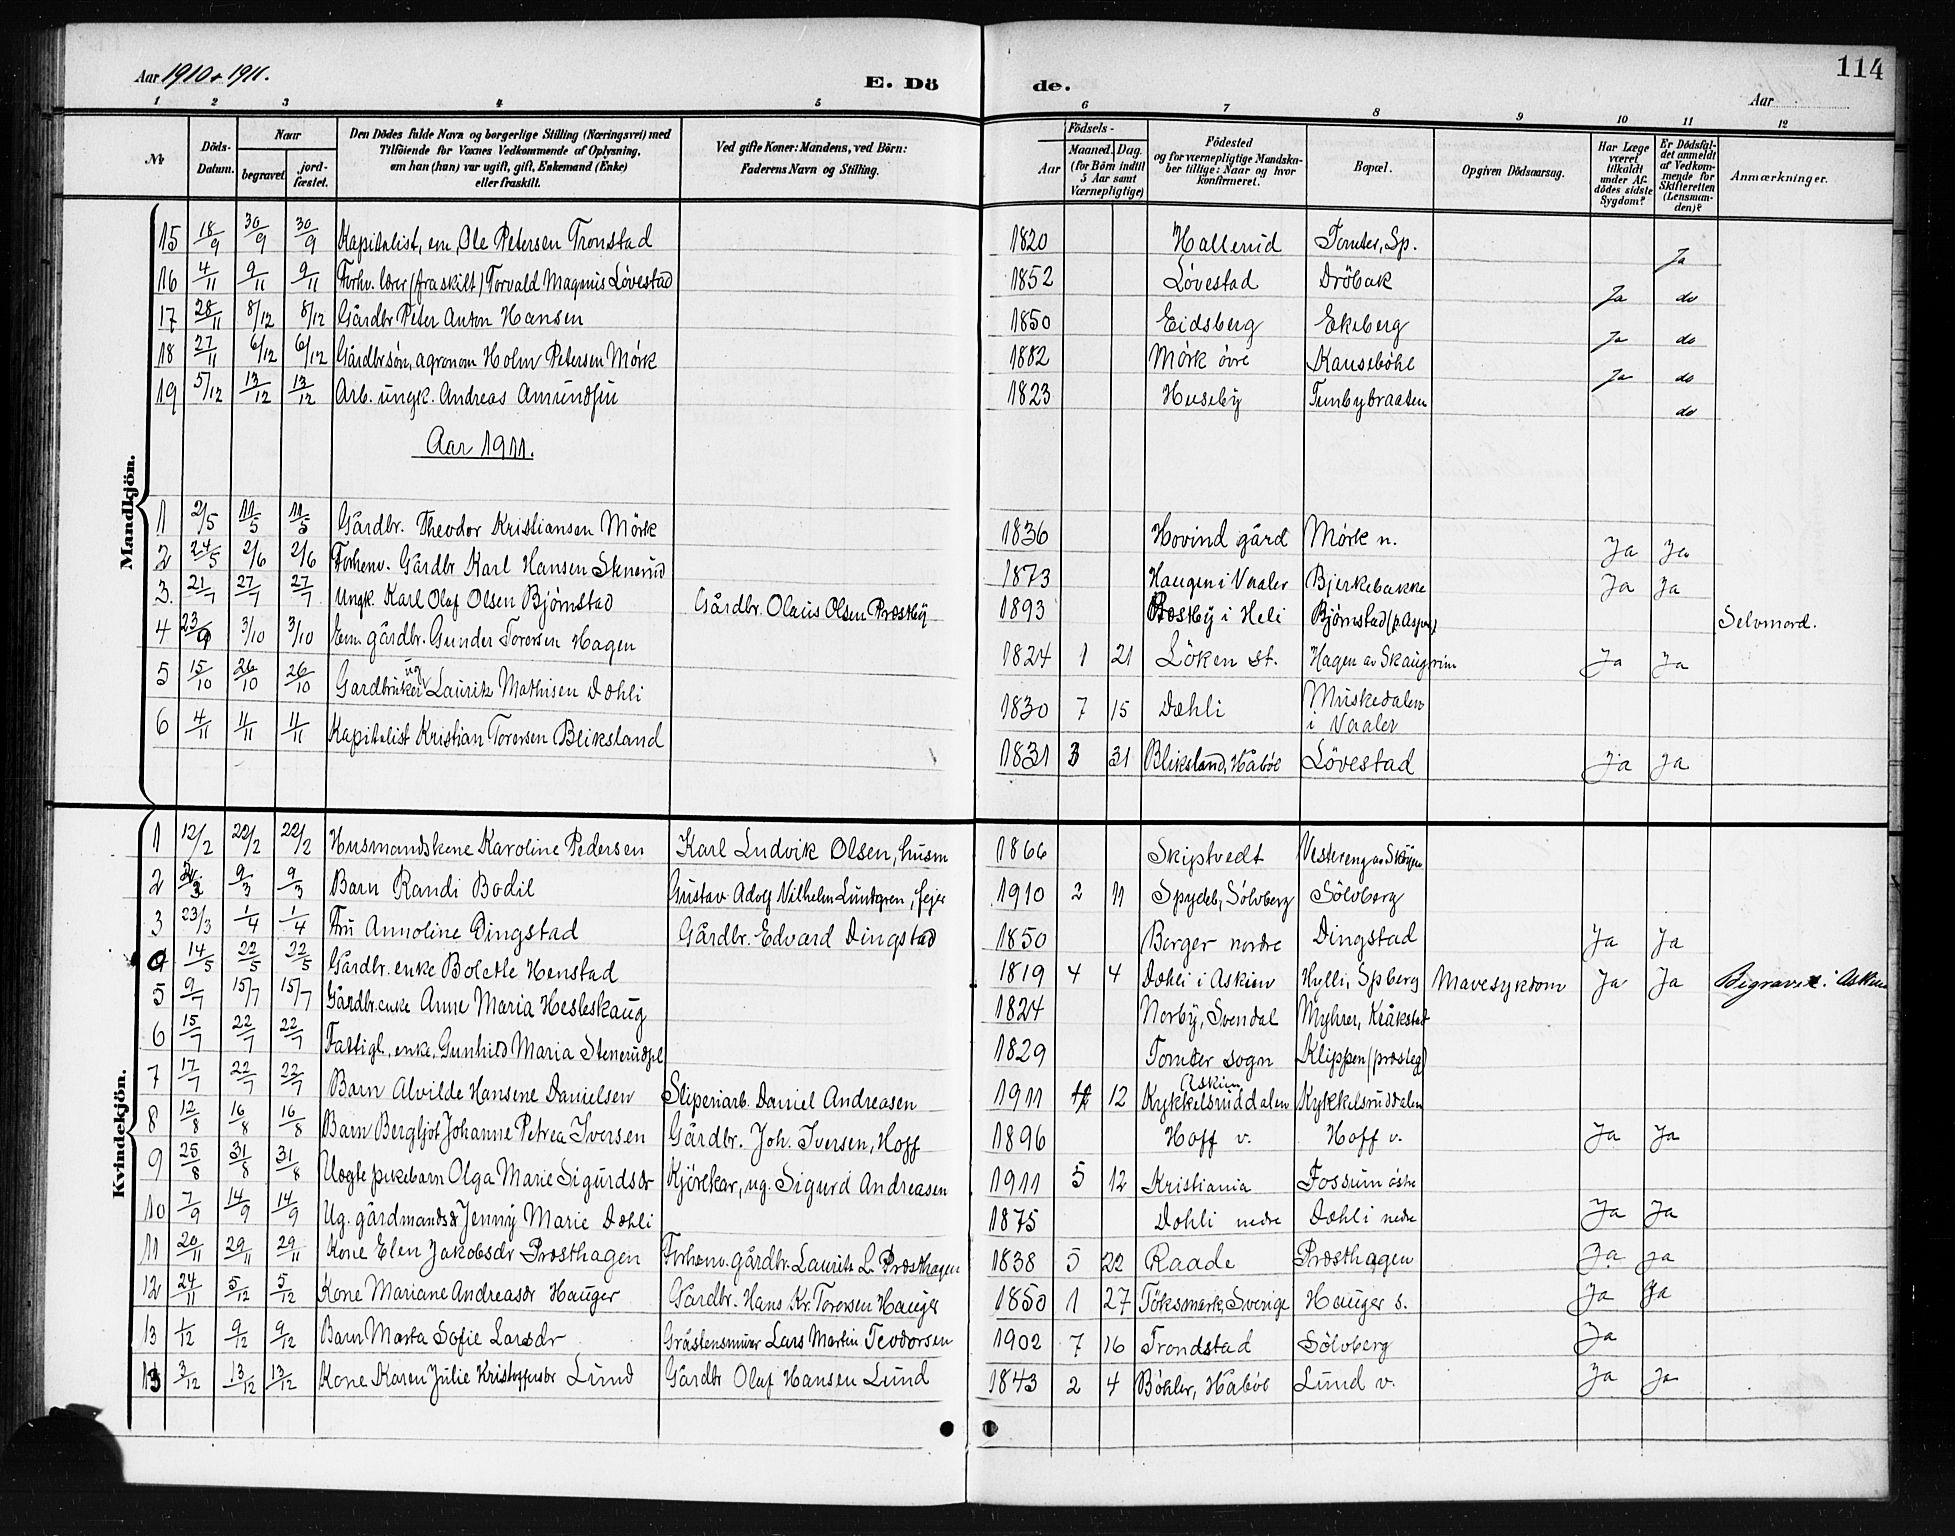 Aar 1910 & 1911.
E. Dö
de.
Aar
114
1 2 3 4 5 6 7 8 9 10 11 12
Nr
Döds-Datum.
Naar
begravet
jord-fæstet.
Den Dödes fulde Navn og borgerlige Stilling (Næringsvei) med
Tilföiende for Voxnes Vedkommende af Oplysning,
om han (hun) var ugift, gift, Enkemand (Enke)
eller fraskilt.
Ved gifte Koner: Mandens, ved Börn:
Faderens Navn og Stilling.
Födsels-
Aar
Maaned. Dag.
(for Börn indtil
5 Aar samt
Værnepligtige)
Födested
og for værnepligtige Mandska-
ber tillige: Naar og hvor
konfirmeret.
Bopæl.
Opgiven Dödsaarsag.
Har Læge
været
tilkaldt
under Af-
dödes sidste
Sygdom?
Er Dödsfal-
det anmeldt
af Vedkom-
mende for
Skifteretten
(Lensman-
den)?
Anmærkninger.
Mandkjön.
15 18/9 30/9 30/9 Kapitalist, em, Ole Petersen Tronstad 1820 Hallerud Tomter, Sp. Ja
16 4/11 9/11 9/11 Forhv. lærer (fraskilt) Torvald Magnus Løvestad 1852 Løvestad Dröbak Ja do
17 28/11 8/12 8/12 Gårdbr Peter Anton Hansen 1850 Eidsberg Ekeberg Ja do
18 27/11 6/12 6/12 Gårdbrsøn, agronom Holm Petersen Mörk 1882 Mørk övre Kauseböhl Ja do
19 5/12 13/12 13/12 Arb. ungk. Andreas Amundsen 1823 Huseby Tunbybraaten do
Aar 1911.
1 2/5 11/5 11/5 Gårdbr. Theodor Kristiansen Mörk 1836 Hovind gård Mørk n. Ja Ja
2 24/5 2/6 2/6 Forhenv. Gårdbr Karl Hansen Stenerud 1873 Haugen i Vaaler Bjerkebakke Ja Ja
3. 21/7 27/7 27/7 Ungk. Karl Olaf Olsen Bjørnstad Gårdbr. Olaus Olsen Præstby 1893 i Heli Bjørnstad Selvmord.
4 23/9 3/10 3/10 Em. gårdbr. Gunder Torersen Hagen 1824 1 21 Löken st. Hagen av Skaugrim Ja Ja
5 15/10 26/10 26/10 Gardbruker ug Lauritz Mathisen Dæhli 1830 7 15 Dæhli Muskedalen
i Vaaler
6 4/11 11/11 11/11 Kapitalist Kristian Torersen Bliksland 1831 3 31 Bliksland, Håböl Løvestad Ja Ja
Kvindekjön.
1 12/2 22/2 22/2 Husmandskone Karoline Pedersen Karl Ludvik Olsen, husm 1866 Skiptvedt Vestereng av
2 9/3 9/3 Barn Randi Bodil Gustav Adolf Vilhelm Lundgren, fejer 1910 2 11 Spydeb, Sölvberg Sölvberg
3 23/3 1/4 1/4 Fru Annoline Dingstad Gårdbr. Edvard Dingstad 1850 Berger nordre Dingstad Ja Ja
4 14/5 22/5 22/5 Gårdbr. enke Bolette Henstad 1819 4 4 Dæhli i Askim Hylli, Spberg Mavesykdom Ja Ja Askim
5 9/7 15/7 15/7 Gårdbr. enke Anne Maria Hesteskaug 1824 Norby, Svendal Myhrer, Kråkstad
6 15/7 22/7 22/7 Fattigl. enke, Gunhild Maria 1829 Tomter sogn Klippen (prosteg)
7 17/7 22/7 22/7 Barn Alvilde Hansene Danielsen Sliperiarb. Daniel Andreasen 1911 12 Askim Kykkelsruddalen Kykkelsruddalen
8 12/8 16/8 16/8 Barn Bergljot Johanne Petrea Iversen Gårdbr. Joh. Iversen, Hoff 1896 Hoff v. Hoff v. Ja Ja
9 25/8 31/8 31/8 Uægte pikebarn Olga Marie Sigurdsdr Kjörekar, ug. Sigurd Andreasen 1911 5 12 Kristiania Fossum östre
10 7/9 14/9 14/9 Ug. gårdmandsd Jenny Marie Dæhli 1875 Dæhli nedre Dæhli nedre Ja Ja
11 20/11 29/11 29/11 Kone Elen Jakobsdr Præsthagen Forhenv. gårdbr. Lauritz L. Præsthagen 1838 5 22 Raade Præsthagen Ja Ja
12 24/11 5/12 5/12 Kone Mariane Andreasdr Hauger Gårdbr. Hans Kr. Torersen Hauger 1850 1 27 Töksmark, Sverige Hauger s. Ja Ja
13 1/12 9/12 9/12 Barn Marta Sofie Larsdr Gråstensmurer Lars Martin Teodorsen 1902 7 16 Trondstad Sölvberg Ja
3/12 13/12 13/12 Kone Karen Julie Kristoffersdr Lund Gårdbr Oluf Hansen Lund 1843 2 4 Böhler, Håböl Lund v. Ja Ja